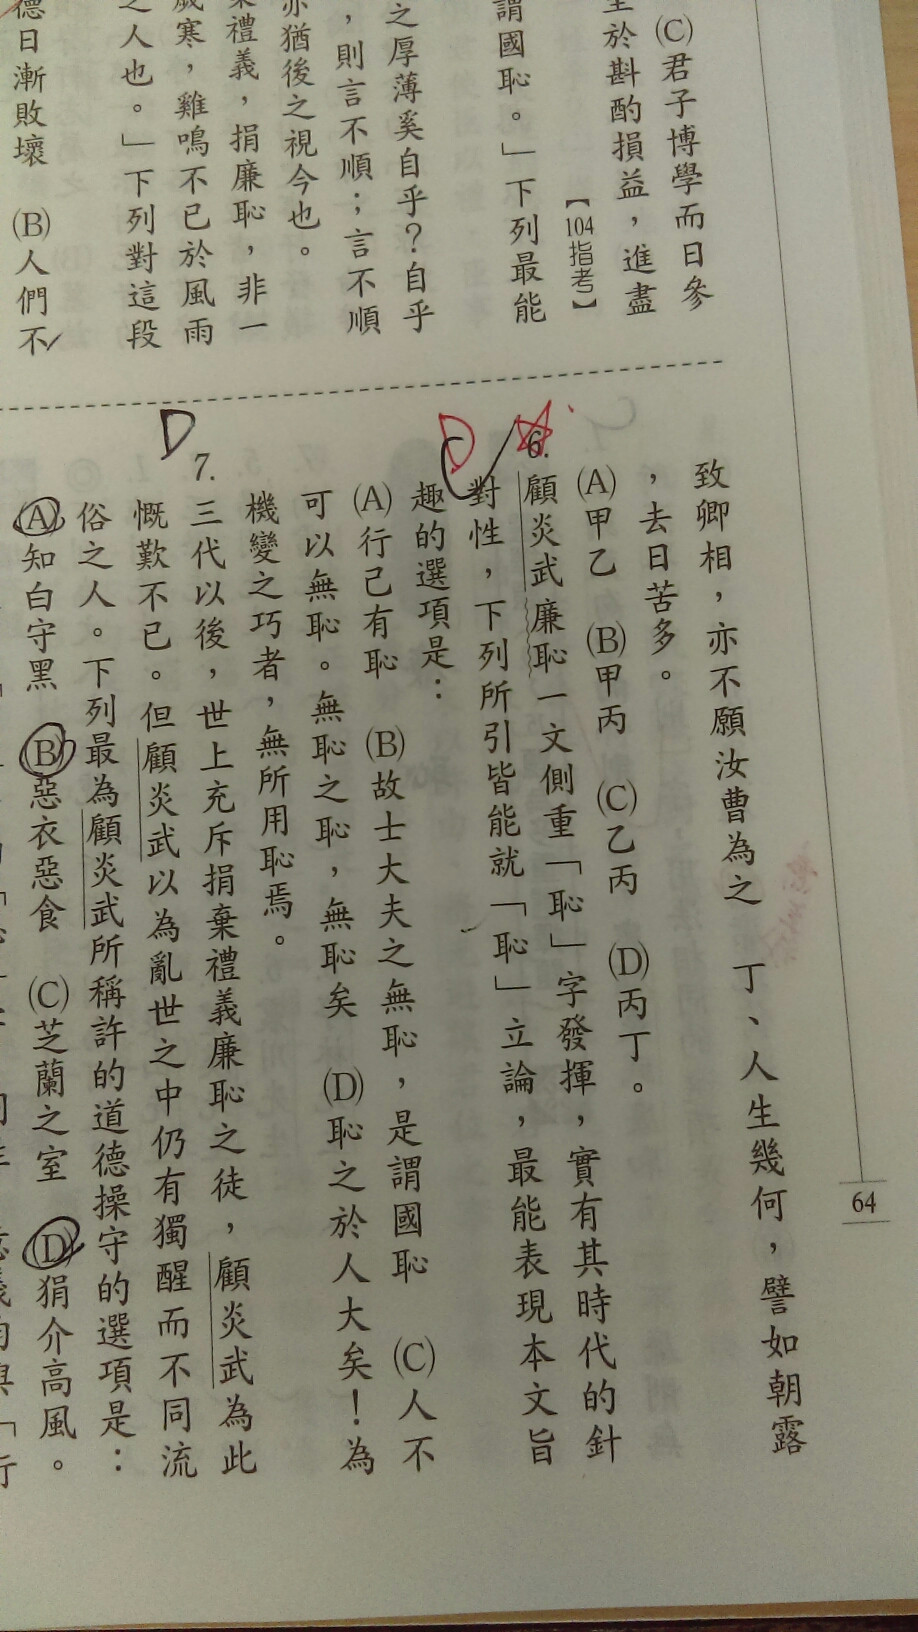 (C)君子博學而日參
至於斟酌損益，進盡
【104指考】
謂國恥。」下列最能
之厚薄奚自乎？自乎
，則言不順；言不順
亦猶後之視今也。
棄禮義，捐廉恥，非一
歲寒，雞鳴不已於風雨
之人也。」下列對這段
德日漸敗壞　(B)人們不
致卿相，亦不願汝曹為之　丁、人生幾何，譬如朝露
，去日苦多。
(A)甲乙　(B)甲丙　(C)乙丙　(D)丙丁。
6.
顧炎武廉恥一文側重「恥」字發揮，實有其時代的針
對性，下列所引皆能就「恥」立論，最能表現本文旨
趣的選項是：
(A)行己有恥　(B)故士大夫之無恥，是謂國恥　(C)人不
可以無恥。無恥之恥，無恥矣　(D)恥之於人大矣！為
機變之巧者，無所用恥焉。
D
7.
三代以後，世上充斥捐棄禮義廉恥之徒，顧炎武為此
慨歎不已。但顧炎武以為亂世之中仍有獨醒而不同流
俗之人。下列最為顧炎武所稱許的道德操守的選項是：
(A)知白守黑　(B)惡衣惡食　(C)芝蘭之室　(D)狷介高風。
64